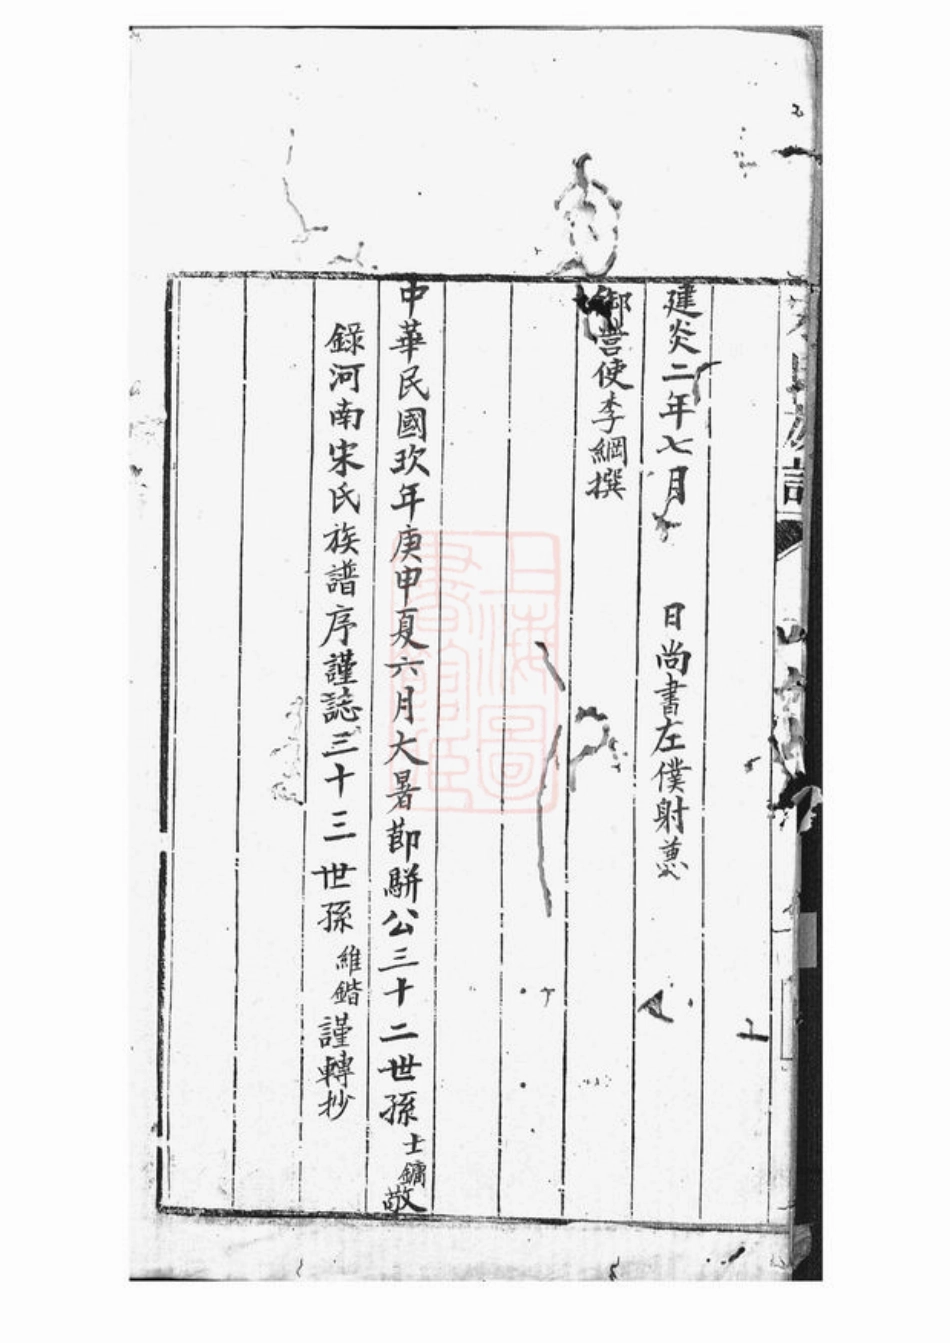 宋氏族譜
建炎二年七月　日尚書左僕射兼
御營使李綱撰
中華民國玖年庚申夏六月大暑節駢公三十二世孫士鏞敬
錄河南宋氏族譜序謹誌三十三世孫維鍇謹轉抄
上海圖
書館藏